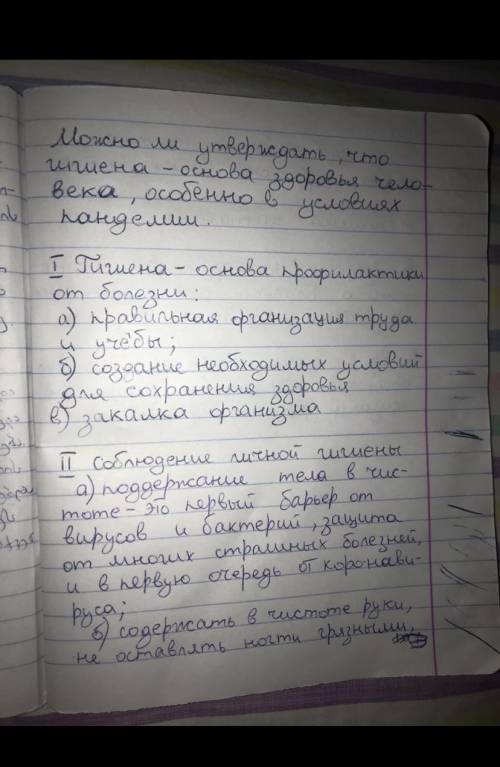 Можно ли утверждать, что
гигиена - основа здоровья чело-
века, особенно в условиях
пандемии.
I Гигиена - основа профилактики
от болезни:
а) правильная организация труда
и учёбы;
б) создание необходимых условий
для сохранения здоровья
в) закалка организма
II Соблюдение личной гигиены
а) поддержание тела в чис-
тоте - это первый барьер от
вирусов и бактерий, защита
от многих страшных болезней,
и в первую очередь от коронави-
руса;
б) содержать в чистоте руки,
не оставлять ногти грязными,